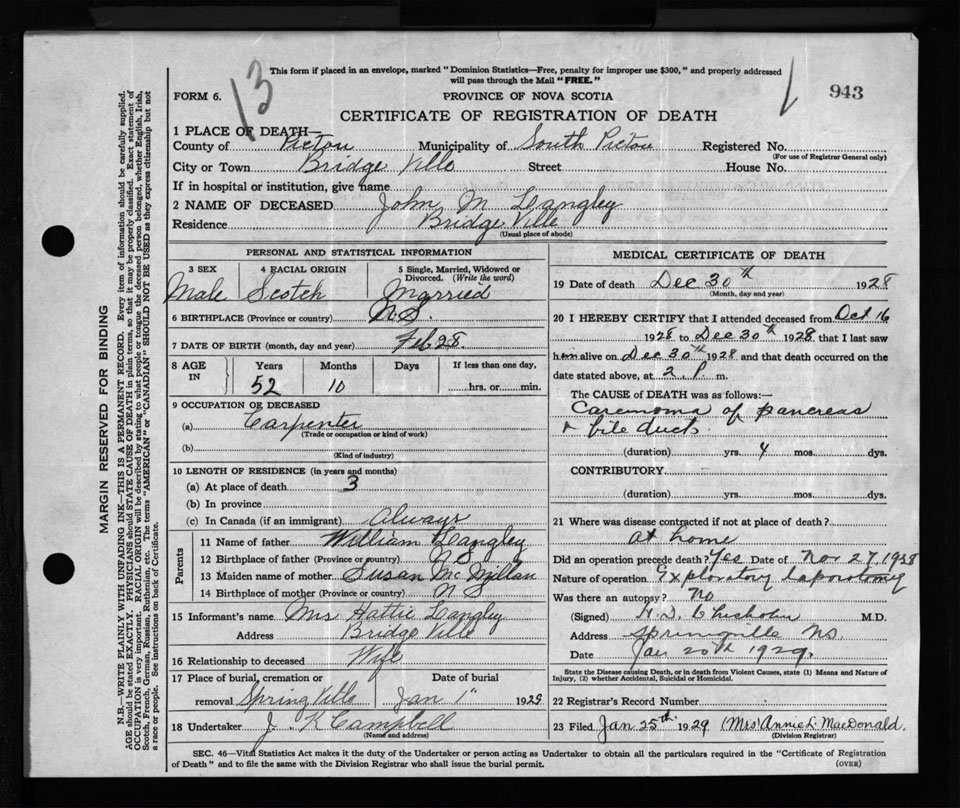 13
943
This form if placed in an envelope, marked "Dominion Statistics—Free, penalty for improper use $300," and properly addressed
will pass through the Mail "FREE."
FORM 6.
PROVINCE OF NOVA SCOTIA
CERTIFICATE OF REGISTRATION OF DEATH
1 PLACE OF DEATH—
County of Pictou Municipality of South Pictou Registered No.
(For use of Registrar General only)
City or Town Bridge Ville Street House No.
If in hospital or institution, give name
2 NAME OF DECEASED John M Langley
Residence Bridge Ville
(Usual place of abode)
PERSONAL AND STATISTICAL INFORMATION
3 SEX 4 RACIAL ORIGIN 5 Single, Married, Widowed or
Divorced. (Write the word)
Male Scotch Married
6 BIRTHPLACE (Province or country) N.S.
7 DATE OF BIRTH (month, day and year) Feb 28.
8 AGE IN Years Months Days If less than one day,
52 10 hrs. or min.
9 OCCUPATION OR DECEASED
(a) Carpenter
(Trade or occupation or kind of work)
(b)
(Kind of industry)
10 LENGTH OF RESIDENCE (in years and months)
(a) At place of death 3
(b) In province
(c) In Canada (if an immigrant) Always
Parents
11 Name of father William Langley
12 Birthplace of father (Province or country) N S
13 Maiden name of mother Susan McMillan
14 Birthplace of mother (Province or country) N S
15 Informant's name Mrs Hattie Langley
Address Bridge Ville
16 Relationship to deceased Wife
17 Place of burial, cremation or Date of burial
removal Spring Ville Jan 1" 1929
18 Undertaker J. K Campbell
(Name and address)
MEDICAL CERTIFICATE OF DEATH
19 Date of death Dec 30th 1928
(Month, day and year)
20 I HEREBY CERTIFY that I attended deceased from Oct 16
1928 to Dec 30th 1928 that I last saw
him alive on Dec 30th 1928 and that death occurred on
date stated above, at 2. P. m.
The CAUSE of DEATH was as follows:—
Carcinoma of pancreas
& bile duct.
(duration) yrs. 4 mos. dys.
CONTRIBUTORY
(duration) yrs. mos. dys.
21 Where was disease contracted if not at place of death?
At home
Did an operation precede death? Yes. Date of Nov 27, 1928
Nature of operation Exploratory Laparotomy
Was there an autopsy? No
(Signed) H. D. Chisholm M.D.
Address Springville Ns.
Date Jan 20th 1929.
State the Disease causing Death, or in death from Violent Causes, state (1) Means and Nature of
Injury, (2) whether Accidental, Suicidal or Homicidal.
22 Registrar's Record Number
23 Filed Jan 25th 1929 (Mrs) Annie L. MacDonald.
(Division Registrar)
SEC. 46—Vital Statistics Act makes it the duty of the Undertaker or person acting as Undertaker to obtain all the particulars required in the "Certificate of Registration
of Death" and to file the same with the Division Registrar who shall issue the burial permit.
(OVER)
MARGIN RESERVED FOR BINDING
N.B.—WRITE PLAINLY WITH UNFADING INK—THIS IS A PERMANENT RECORD. Every item of information should be carefully supplied.
AGE should be stated EXACTLY. PHYSICIANS should STATE CAUSE OF DEATH in plain terms, so that it may be properly classified. Exact statement of
OCCUPATION is very important. RACIAL ORIGIN will be described by stating to what people or tongue the deceased person belonged, whether English, Irish,
Scotch, French, German, Russian, Ruthenian, etc. The terms "AMERICAN" or "CANADIAN" SHOULD NOT BE USED as they express citizenship but not
a race or people. See instructions on back of Certificate.